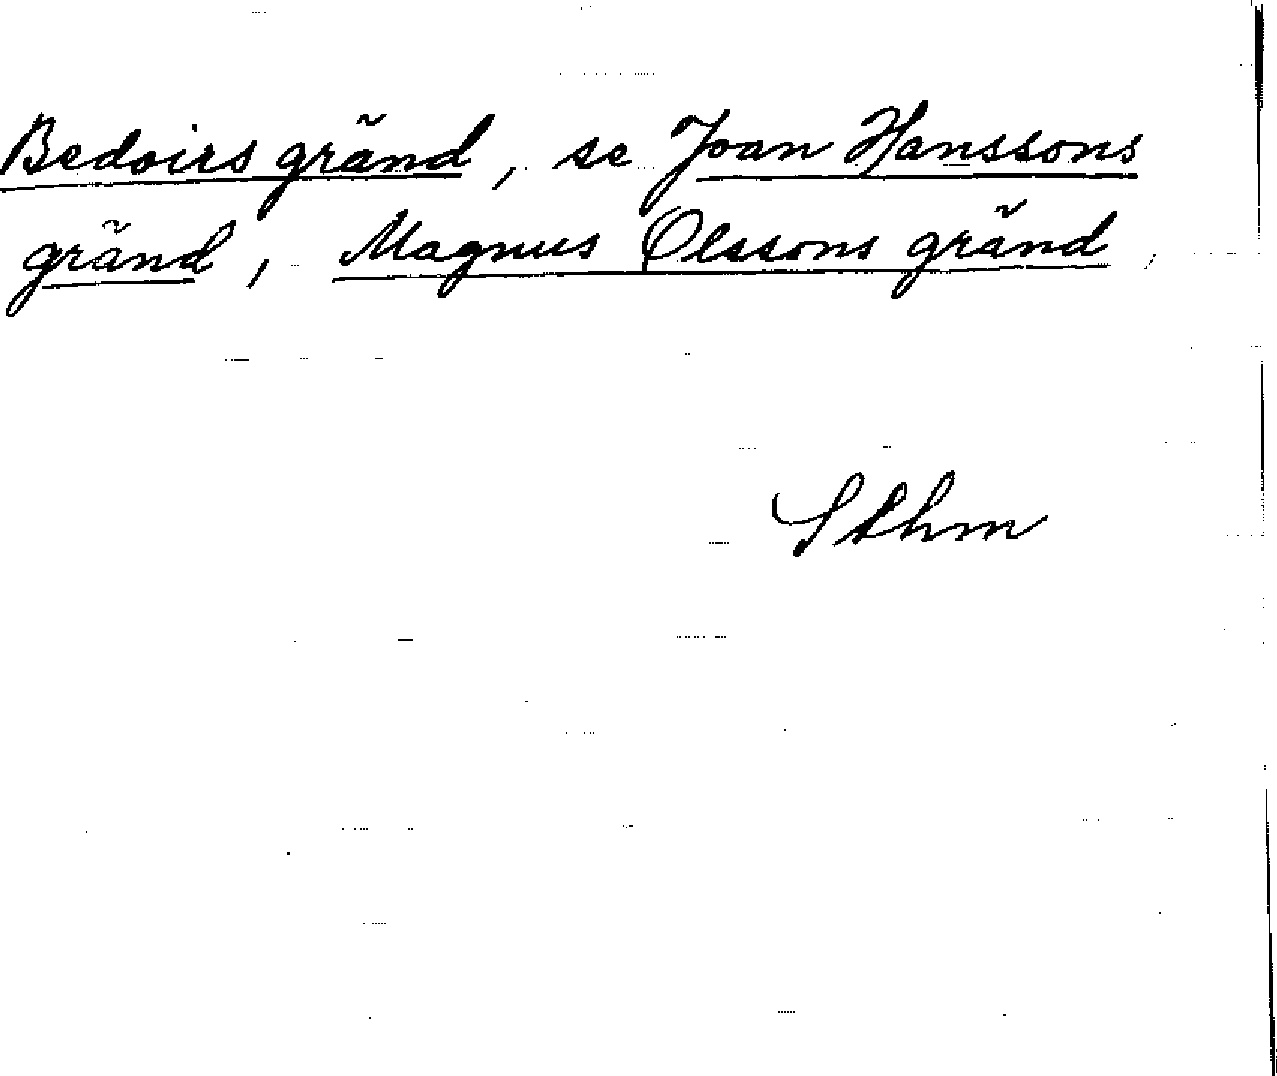 Bedoirs gränd, se Joan Hanssons
gränd, Magnus Olssons gränd,
Sthm